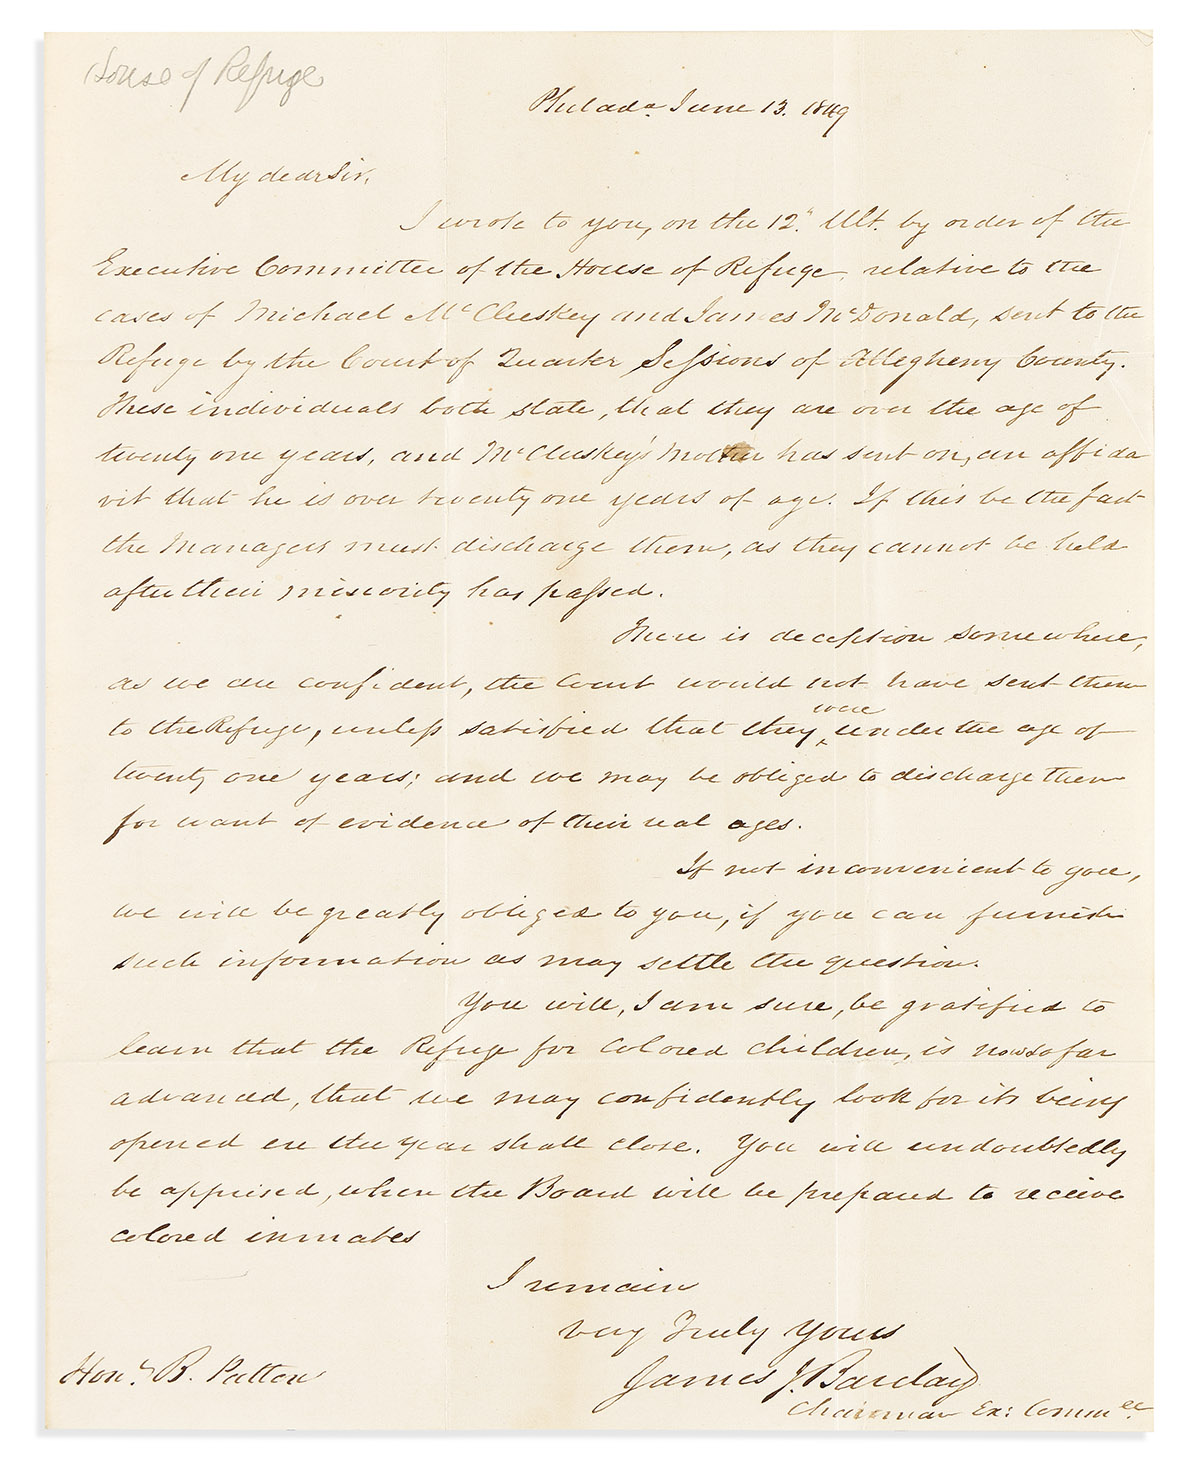 House of Refuge
Philada. June 13. 1849
My dear Sir,
I wrote to you, on the 12". Ult. by order of the
Executive Committee of the House of Refuge, relative to the
cases of Michael McCluskey and James McDonald, sent to the
Refuge by the Court of Quarter Sessions of Allegheny County.
These individuals both state, that they are over the age of
twenty one years, and McCluskey's Mother has sent on, an affida
vit that he is over twenty one years of age. If this be the fact
the Managers must discharge them, as they cannot be held
after their minority has passed.
There is deception somewhere,
as we are confident, the Court would not have sent them
to the Refuge, unless satisfied that they were under the age of
twenty one years; and we may be obliged to discharge them
for want of evidence of their real ages.
If not inconvenient to you,
we will be greatly obliged to you, if you can furnish
such information as may settle the question.
You will, I am sure, be gratified to
learn that the Refuge for Colored Children, is now so far
advanced, that we may confidently look for its being
opened ere the year shall close. You will undoubtedly
be apprised, when the Board will be prepared to receive
colored inmates
I remain
very Truly Yours
James J. Barclay
Chairman Ex: Commee.
Hon: B. Patton